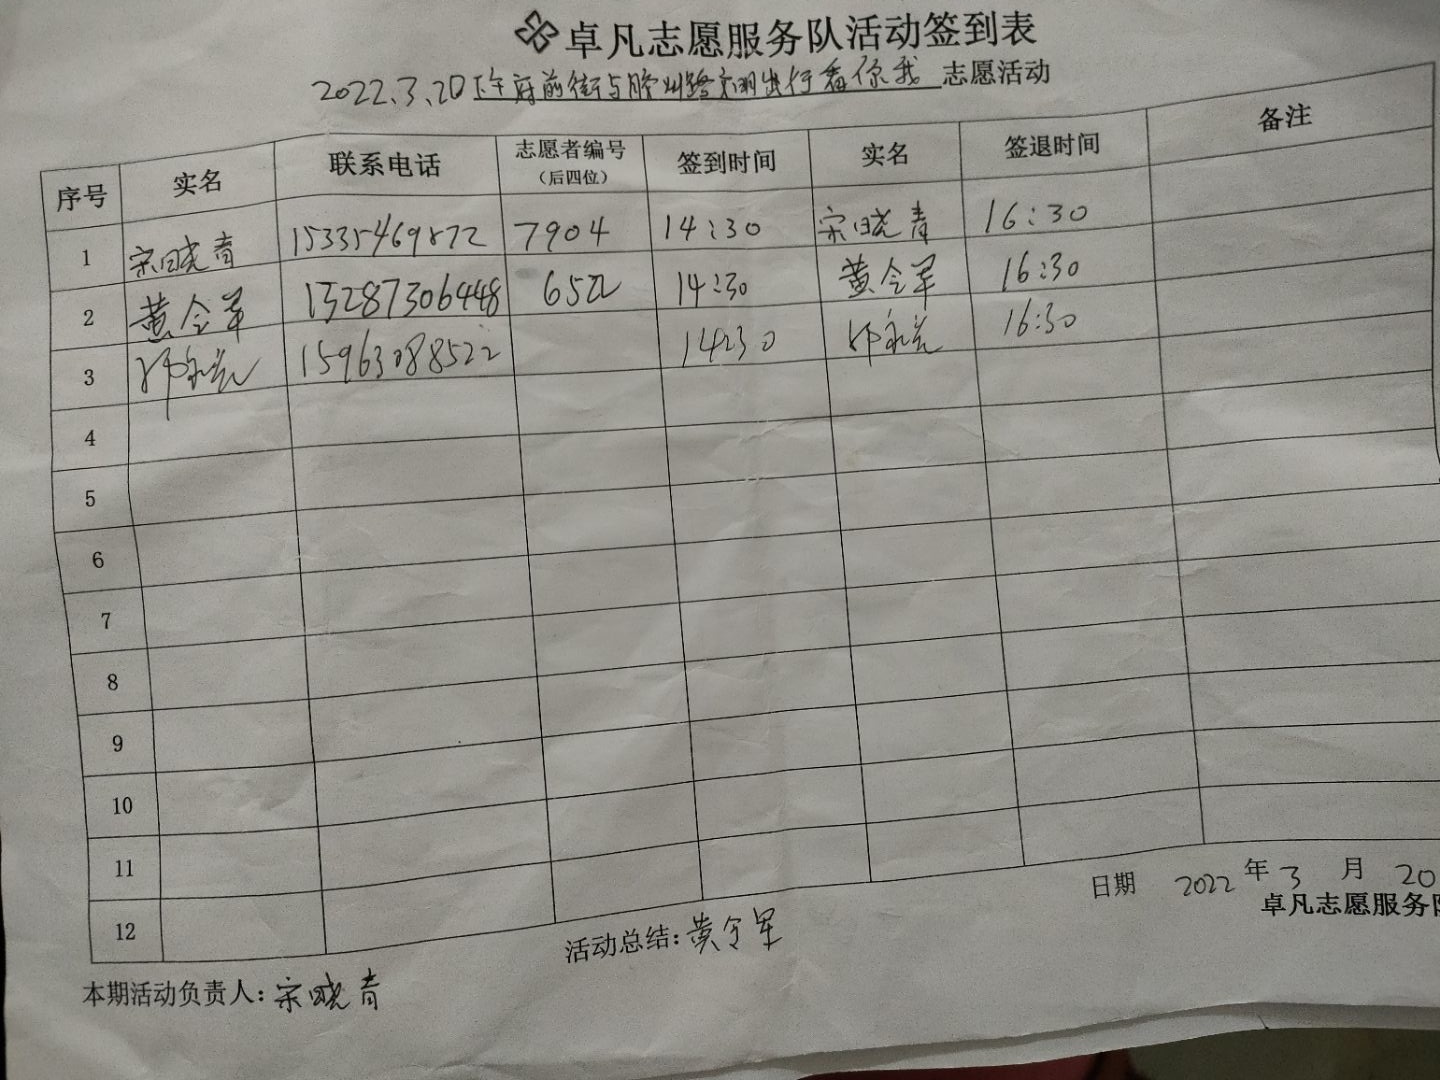 卓凡志愿服务队活动签到表
2022.3.20下午府前街与胶州路文明出行看你我 志愿活动
序号 实名 联系电话 志愿者编号（后四位） 签到时间 实名 签退时间 备注
1 宋晓青 15335469872 7904 14:30 宋晓青 16:30
2 黄令军 13287306448 6522 14:30 黄令军 16:30
3 15963088522 14:30 16:30
4
5
6
7
8
9
10
11
12
日期 2022年3月20
卓凡志愿服务队
活动总结:黄令军
本期活动负责人:宋晓青